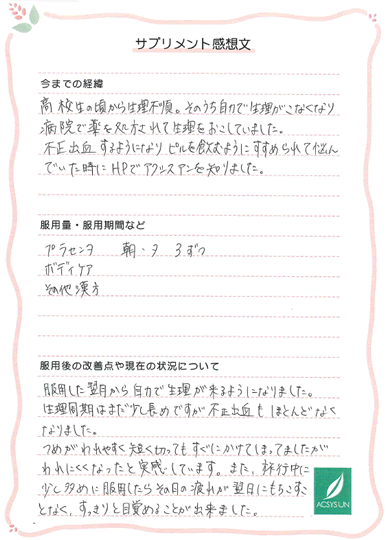 サプリメント感想文
今までの経緯
高校生の頃から生理不順。そのうち自力で生理がこなくなり
病院で薬を処方されて生理をおこしていました。
不正出血するようになりピルを飲むようにすすめられて悩ん
でいた時にHPでアクシスアンを知りました。
服用量・服用期間など
プラセンタ 朝・夕 3ずつ
ボディケア
その他漢方
服用後の改善点や現在の状況について
服用した翌月から自力で生理が来るようになりました。
生理周期はまだ少し長めですが不正出血もほとんどなく
なりました。
つめがわれやすく短く切ってもすぐにかけてしまってましたが
われにくくなったと実感しています。また、旅行中に
少し多めに服用したらその日の疲れが翌日にもちこすこ
となく、すっきりと目覚めることが出来ました。
ACSYSUN